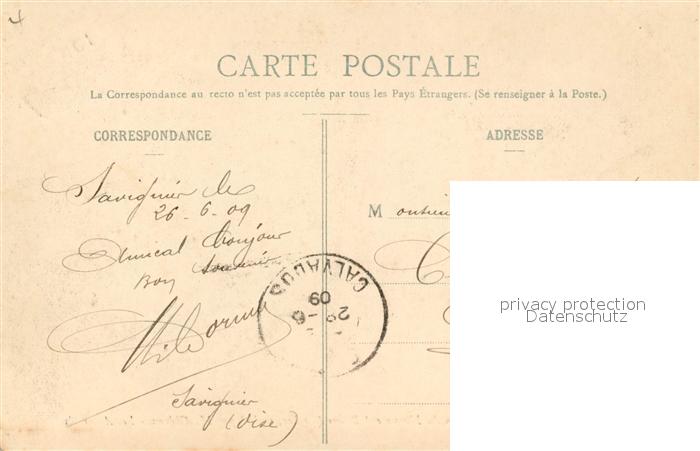 CARTE POSTALE
La Correspondance au recto n'est pas acceptée par tous les Pays Étrangers. (Se renseigner à la Poste.)
CORRESPONDANCE
ADRESSE
Savignier le
26-6-09
Amical bonjour
Bon souvenir
Savignier
(Oise)
Monsieu
CALVADOS
09
privacy protection
Datenschutz